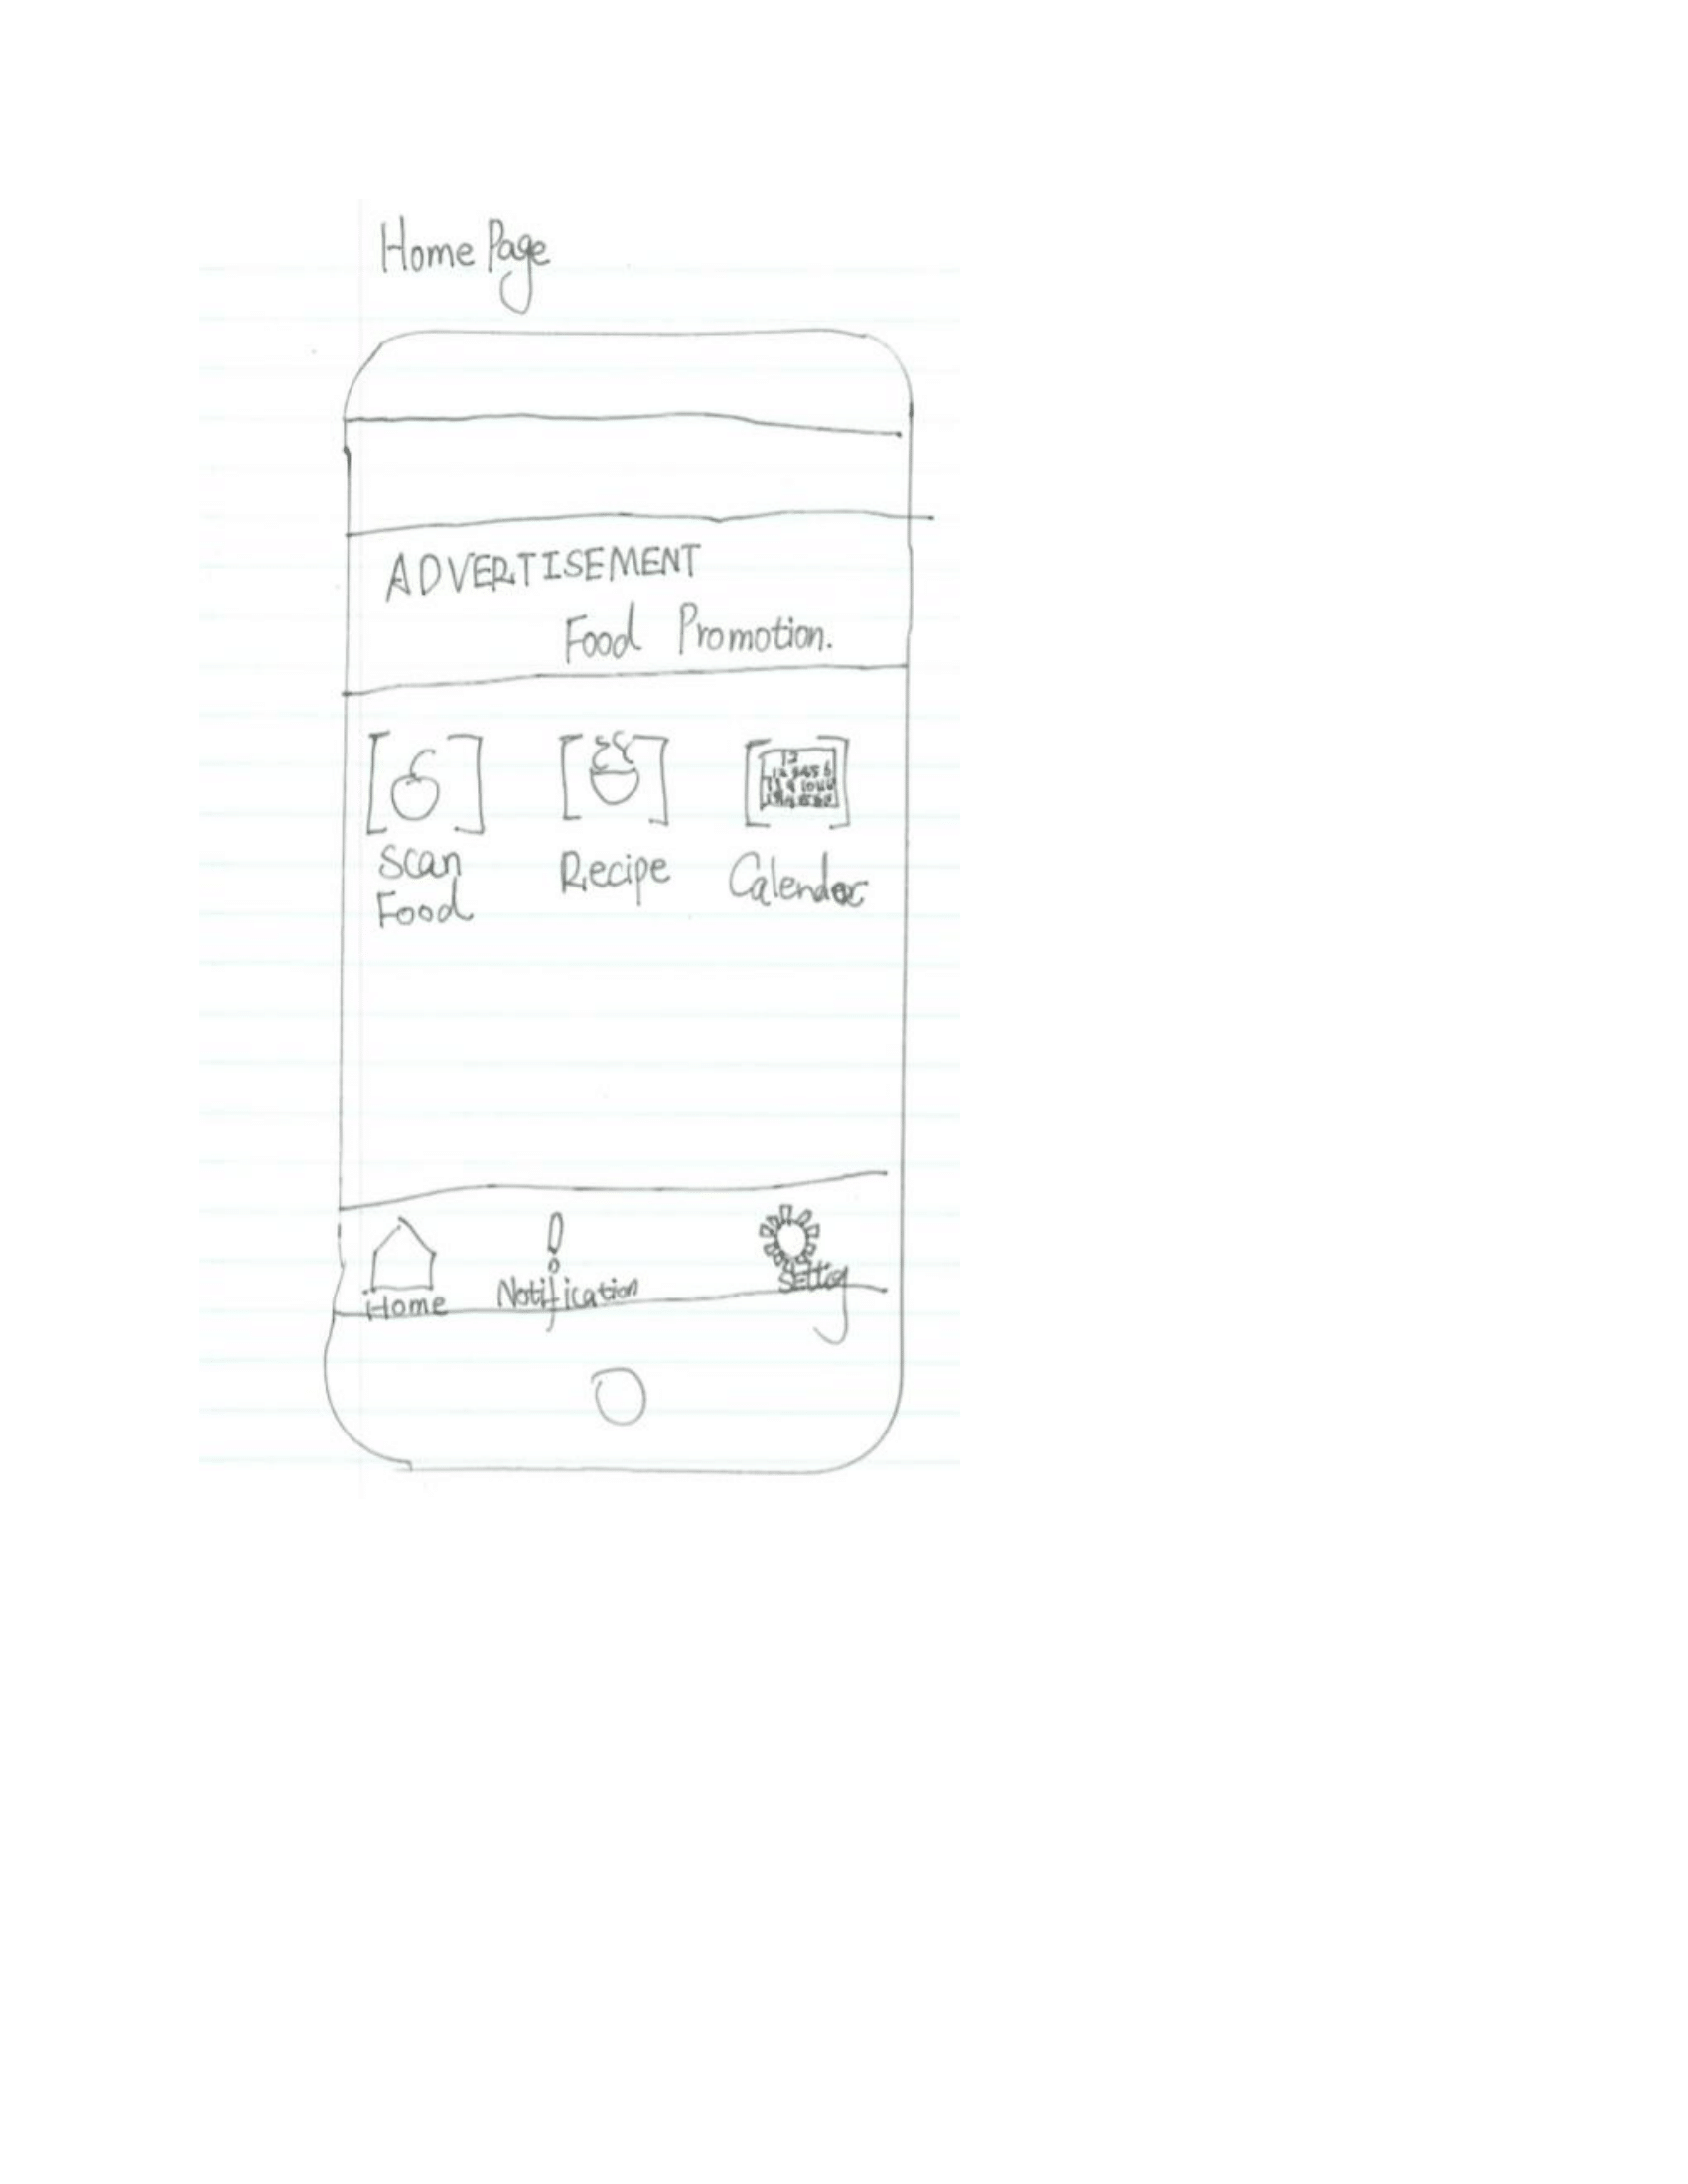 Home Page
ADVERTISEMENT
Food Promotion.
Scan Recipe Calendar
Food
Home Notification Setting